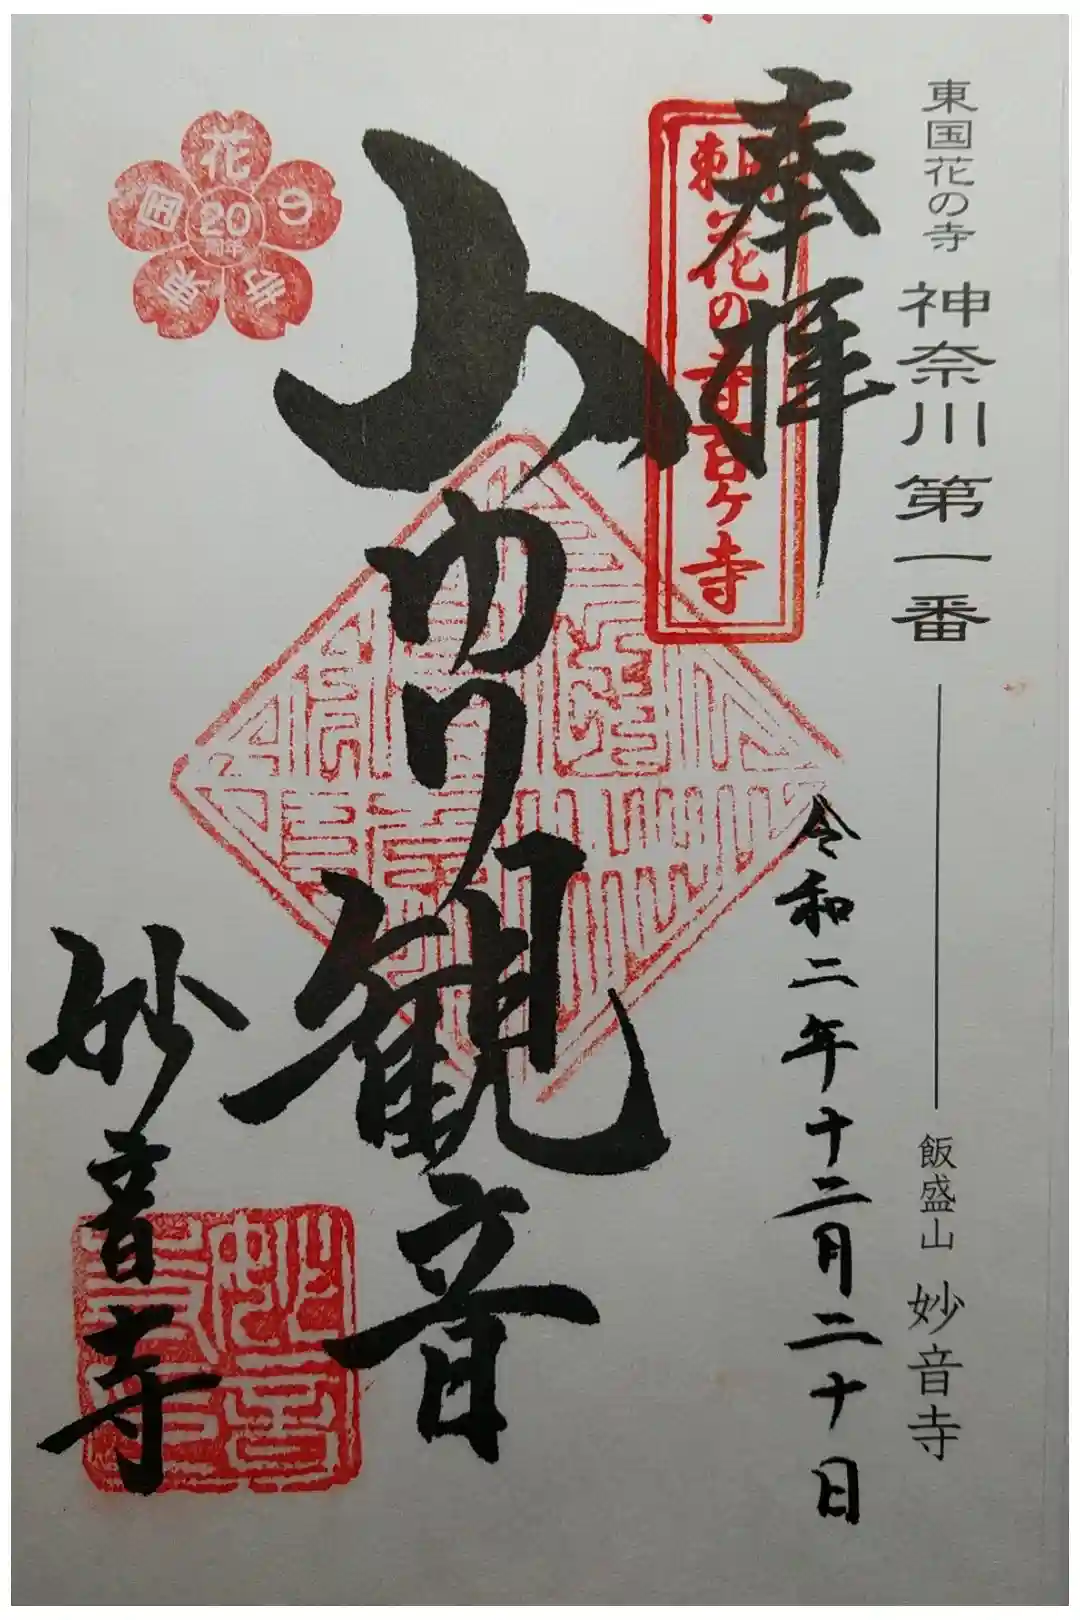 東国花の寺 神奈川第一番 飯盛山 妙音寺
奉拝
東国花の寺百ヶ寺
令和二年十二月二十日
山ゆり観音
妙音寺
東国花の寺
20
周年